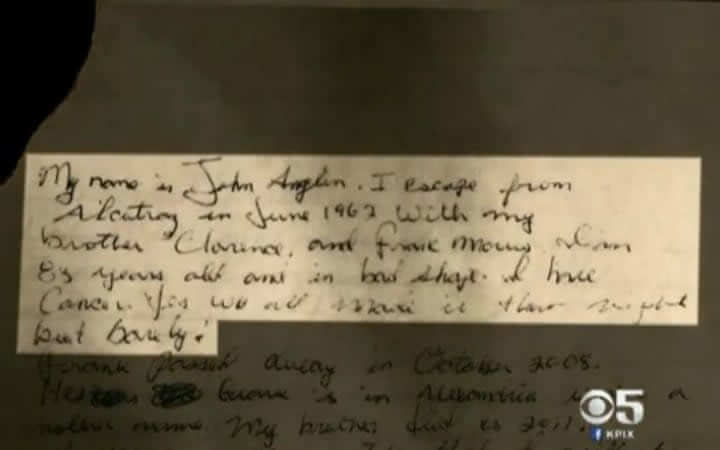 My name is John Anglin. I escape from
Alcatraz in June 1962 With my
brother Clarence, and Frank Morris. I'm
83 years old and in bad shape. I have
Cancer. Yes we all made it that night
but barely!
Frank passed away in October 2008.
His grave is in Alexandria under a
nother name. My brother died in 2011.
CBS 5
f KPIX